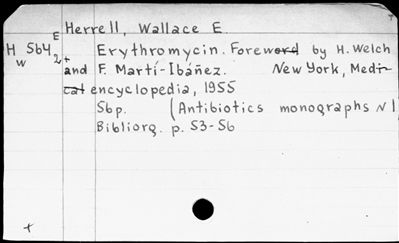 Herrell, Wallace E
E
H 564 Erythromycin. Foreword by H. Welch
W 2+ and F. Martí-Ibáñez. New York, Medi-
cal encyclopedia, 1955
56p. (Antibiotics monographs N 1
Bibliorg. p. 53-56